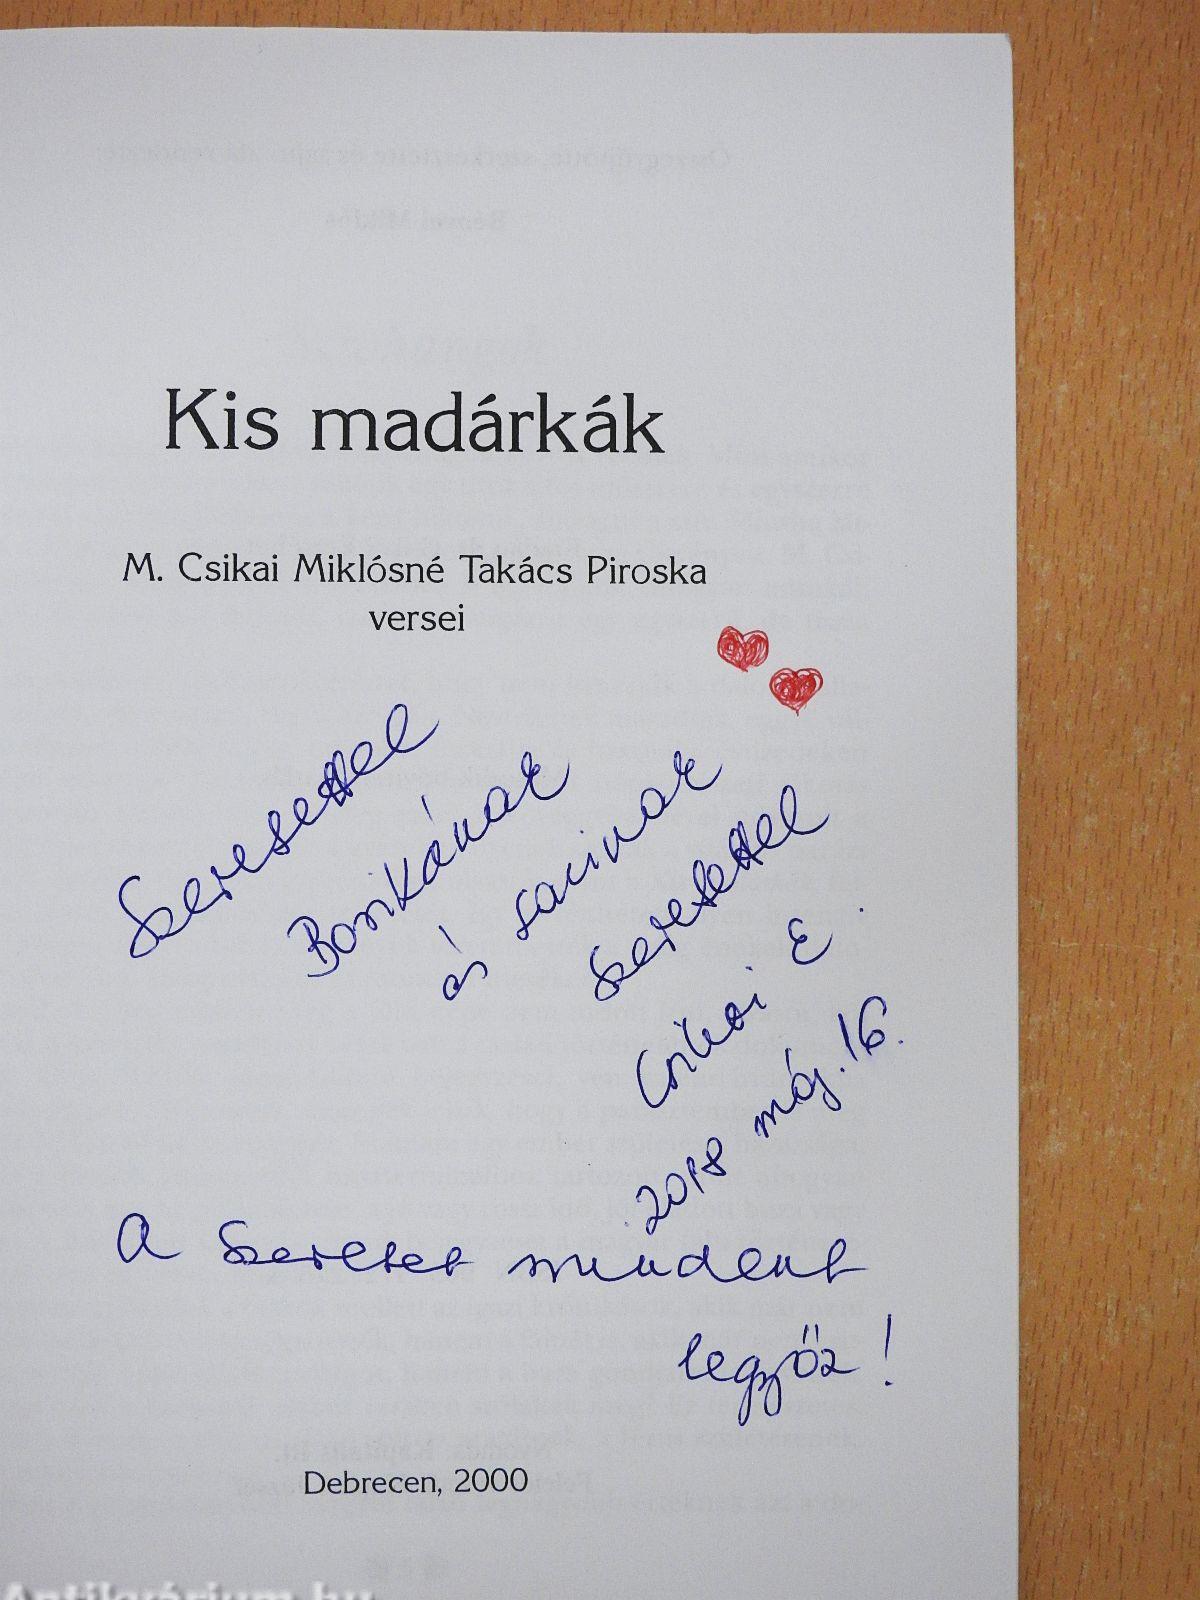 Kis madárkák
M. Csikai Miklósné Takács Piroska
versei
Szeretettel
Borikának
és sacinak
szeretettel
Csikai E.
2018 máj. 16.
A szeretet mindent
legyőz!
Debrecen, 2000
Antikvárium.hu